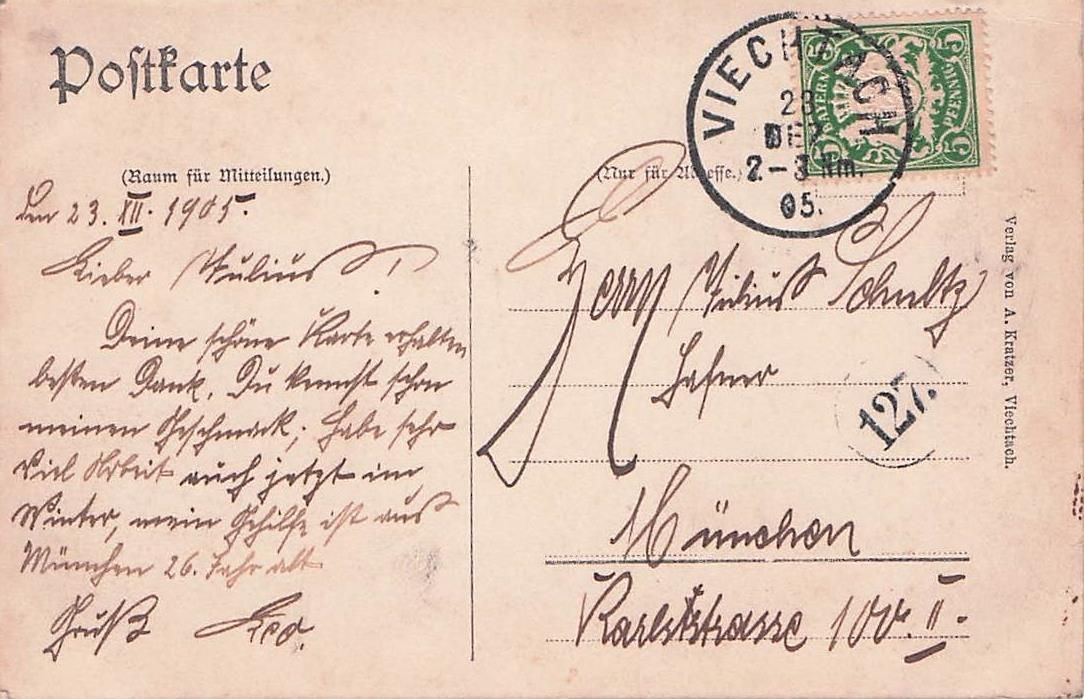 Postkarte
(Raum für Mitteilungen.)
den 23. XII. 1905.
Lieber Julius!
Deine schöne Karte erhalten
besten Dank, Du kennst schon
meinen Geschmack; habe sehr
viel Arbeit auch jetzt im
Winter, mein Gehilfe ist aus
München 26. Jahr alt
Gruß Leo.
VIECHTACH
23
DEZ
2-3 Nm.
05.
BAYERN
5 PFENNIG 5
(Nur für Adresse.)
Herrn Julius Schultz
Hafner
127.
München
Karlstrasse 100. II.
Verlag von A. Kratzer, Viechtach.